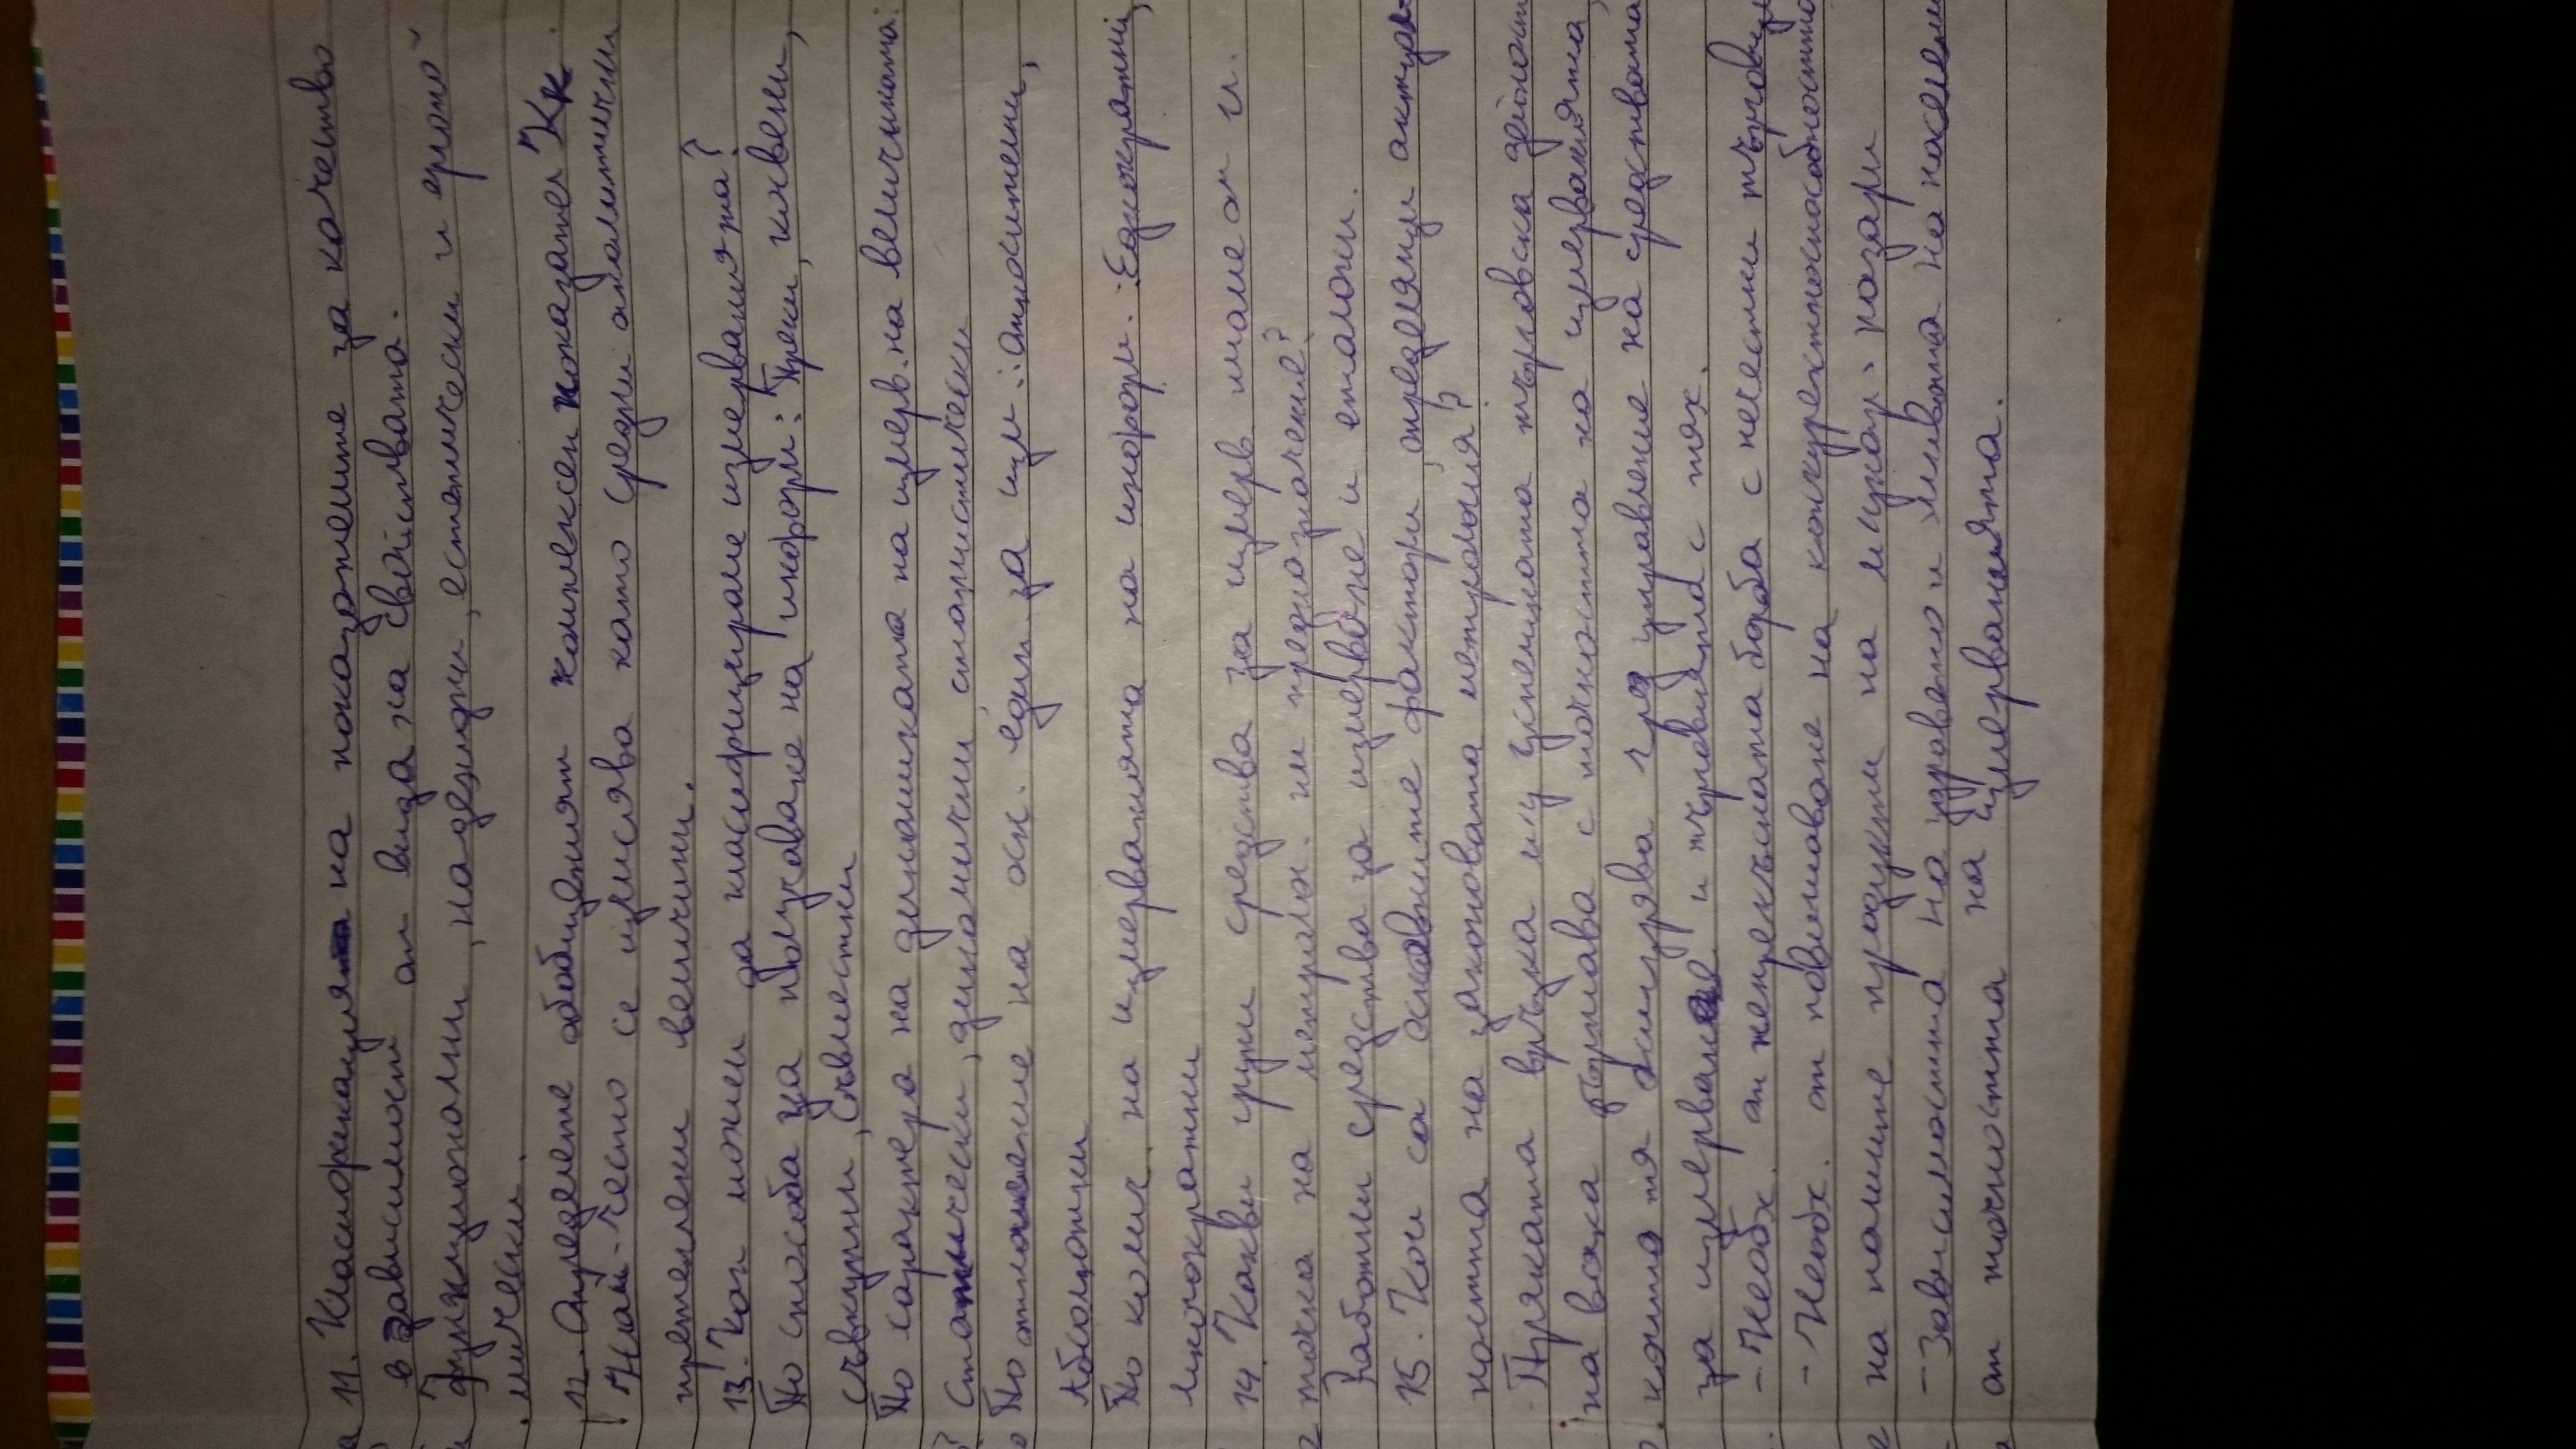 11. Класификация на показателите за качество
в зависимост от вида на свойствата.
Функционални, надеждни, естетически и ергоно-
мически.
12. Определете обобщеният комплексен показател Кк.
Най-често се изчислява като средни аналитични
претеглени величини.
13. Как можем да класифицираме измерванията?
По способа за получаване на информ: Преки, косвени,
съвкупни, съвместни
По характера на динамиката на измерв. на величината:
Статически, динамични, статистически
По отношение на осн. един. за изм.: относителни,
Абсолютни
По колич. на измерванията на информ.: Еднократни,
многократни
14. Какви групи средства за измерв имаме от гл.
точка на метролог. им предназначение?
Работни средства за измерване и еталони.
15. Кои са основните фактори, определящи актуал-
ността на законовата метрология?
- Пряката връзка м/у успешната търговска дейност
на всяка държава с точността на измерванията,
които тя осигурява чрез управление на средствата
за измерване и търговията с тях.
- Необх. от непрекъсната борба с нечестни търговци
- Необх. от повишаване на конкурентноспособността
на нашите продукти на межунар. пазари
- Зависимостта на здравето и живота на населени
от точността на измерванията.